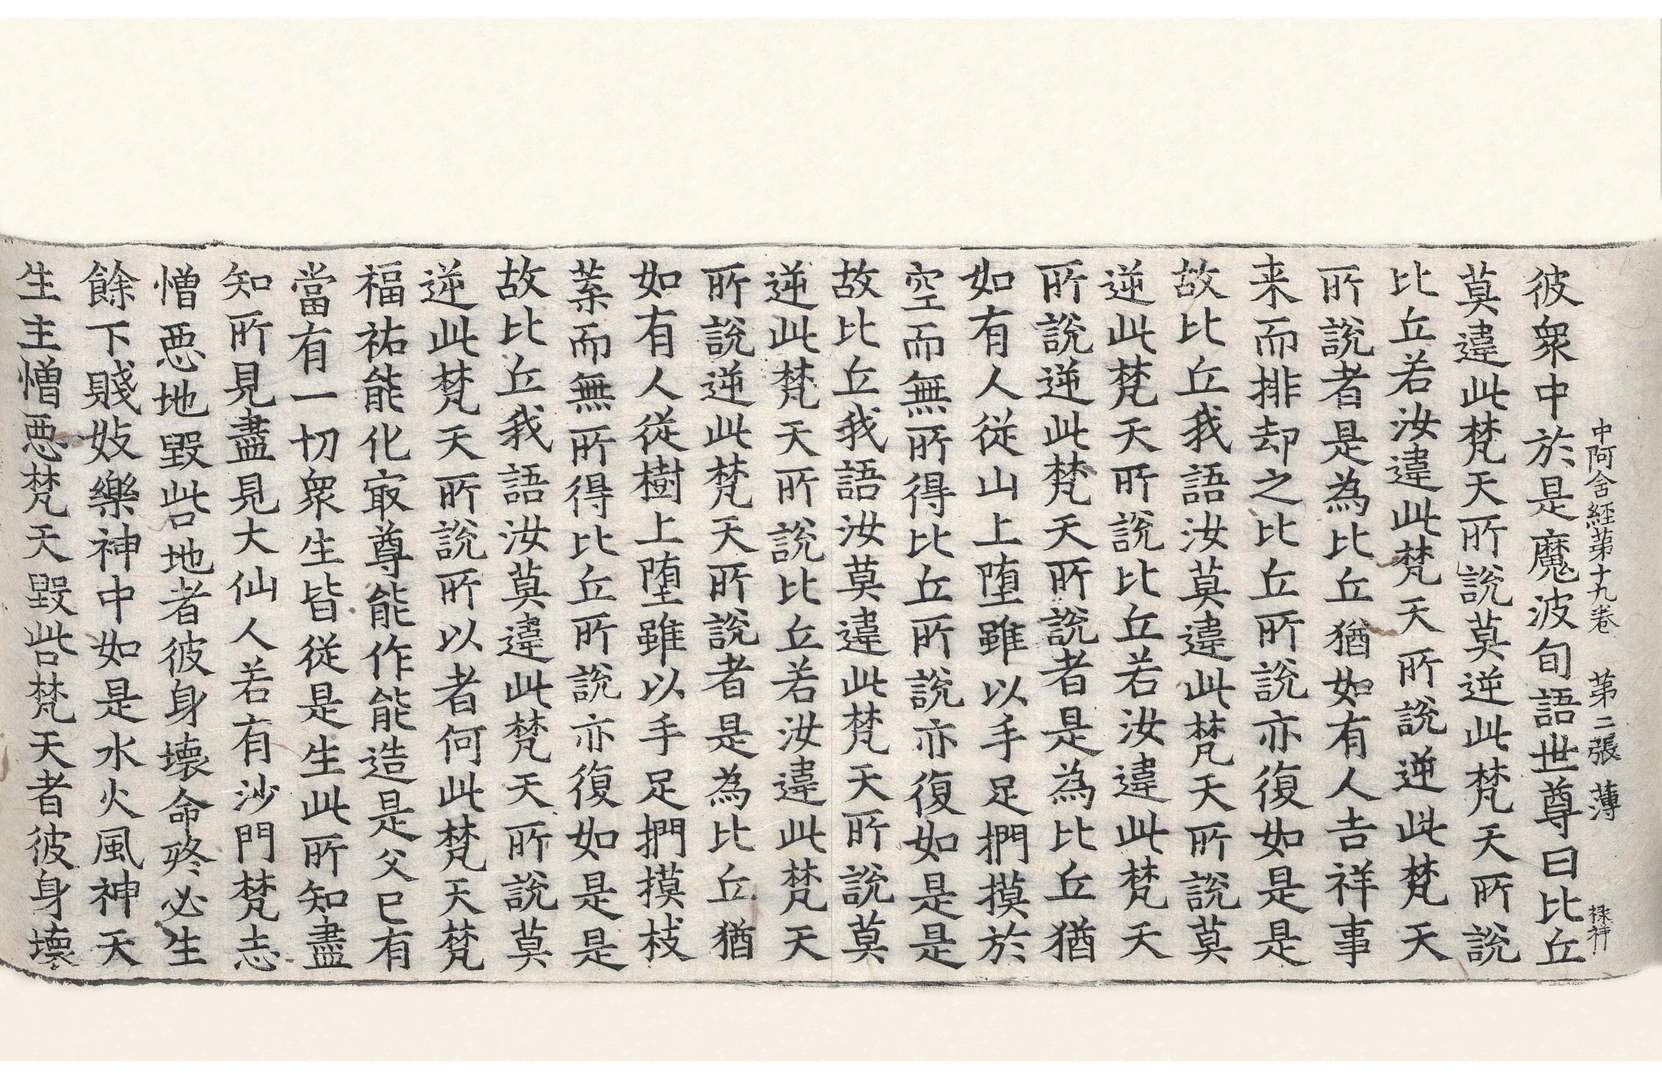 中阿含經第十九卷　第二張　薄　祿祥
彼衆中於是魔波旬語世尊曰比丘
莫違此梵天所說莫逆此梵天所說
比丘若汝違此梵天所說逆此梵天
所說者是為比丘猶如有人吉祥事
来而排却之比丘所說亦復如是是
故比丘我語汝莫違此梵天所說莫
逆此梵天所說比丘若汝違此梵天
所說逆此梵天所說者是為比丘猶
如有人從山上堕雖以手足捫摸於
空而無所得比丘所說亦復如是是
故比丘我語汝莫違此梵天所說莫
逆此梵天所說比丘若汝違此梵天
所說逆此梵天所說者是為比丘猶
如有人從樹上堕雖以手足捫摸枝
葉而無所得比丘所說亦復如是是
故比丘我語汝莫違此梵天所說莫
逆此梵天所說所以者何此梵天梵
福祐能化㝡尊能作能造是父已有
當有一切衆生皆從是生此所知盡
知所見盡見大仙人若有沙門梵志
憎惡地毀呰地者彼身壞命終必生
餘下賤妓樂神中如是水火風神天
生主憎惡梵天毀呰梵天者彼身壞